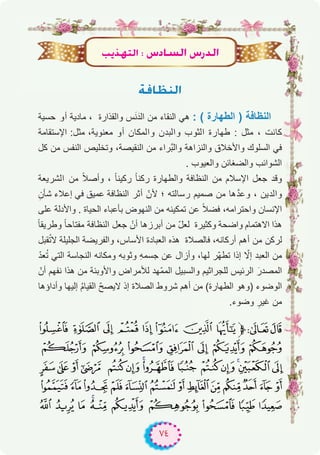 الدرس السادس : التهذيب
النظافة
النظافة ( الطهارة ) : هي النقاء من الدَنَس والقذارة ، مادية أو حسية
كانت ، مثل : طهارة الثوب والبدن والمكان أو معنوية، مثل: الإستقامة
في السلوك والأخلاق والنزاهة والبُراء من النقيصة، وتخليص النفس من كل
الشوائب والضغائن والعيوب .
وقد جعل الإسلام من النظافة والطهارة ركناً ركيناً ، وأصلاً من الشريعة
والدين ، وعدّها من صميم رسالته ؛ لأنّ أثر النظافة عميق في إعلاء شأن
الإنسان واحترامه، فضلاً عن تمكينه من النهوض بأعباء الحياة . والأدلة على
هذا الاهتمام واضحة وكثيرة لعلّ من أبرزها أنْ جعل النظافة مفتاحاً وطريقاً
لركن من أهم أركانه، فالصلاة هذه العبادة الأساس، والفريضة الجليلة لاتُقبل
من العبد إلّا إذا تطهّر لها، وأزال عن جسمه وثوبه ومكانه النجاسة التي تُعدّ
المصدرَ الرئيس للجراثيم والسبيل الممّهد للأمراض والأوبئة من هذا نفهم أنّ
الوضوء (وهو الطهارة) من أهم شروط الصلاة إذ لايصحّ القيامُ إليها وأداؤها
من غيرِ وضوء.
قَالَ تَعَالَىٰ: ﴿ يَٰٓأَيُّهَا ٱلَّذِينَ ءَامَنُوٓا۟ إِذَا قُمْتُمْ إِلَى ٱلصَّلَوٰةِ فَٱغْسِلُوا۟
وُجُوهَكُمْ وَأَيْدِيَكُمْ إِلَى ٱلْمَرَافِقِ وَٱمْسَحُوا۟ بِرُءُوسِكُمْ وَأَرْجُلَكُمْ
إِلَى ٱلْكَعْبَيْنِ وَإِن كُنتُمْ جُنُبًا فَٱطَّهَّرُوا۟ وَإِن كُنتُم مَّرْضَىٰٓ أَوْ عَلَىٰ سَفَرٍ
أَوْ جَآءَ أَحَدٌ مِّنكُم مِّنَ ٱلْغَآئِطِ أَوْ لَٰمَسْتُمُ ٱلنِّسَآءَ فَلَمْ تَجِدُوا۟ مَآءً فَتَيَمَّمُوا۟
صَعِيدًا طَيِّبًا فَٱمْسَحُوا۟ بِوُجُوهِكُمْ وَأَيْدِيكُم مِّنْهُ مَا يُرِيدُ ٱللَّهُ
٧٤